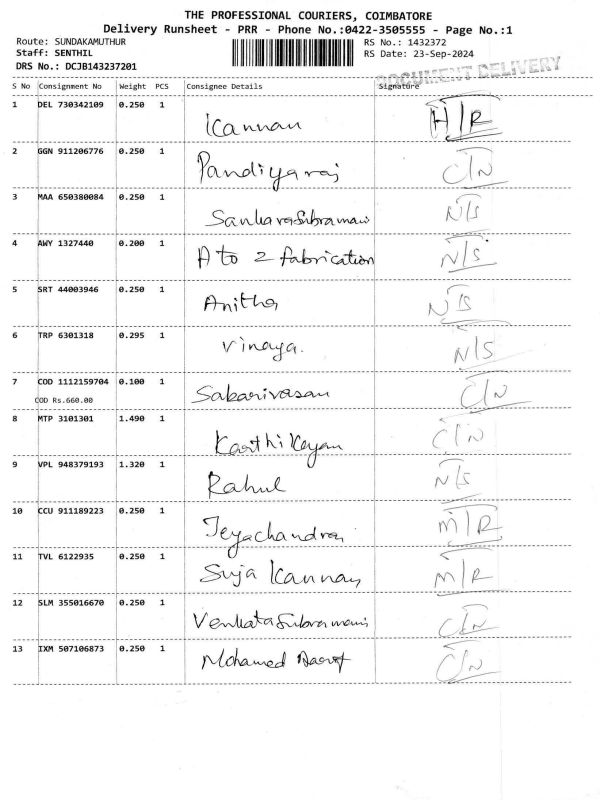 THE PROFESSIONAL COURIERS, COIMBATORE
Delivery Runsheet - PRR - Phone No.:0422-3505555 - Page No.:1
Route: SUNDAKAMUTHUR RS No.: 1432372
Staff: SENTHIL RS Date: 23-Sep-2024
DRS No.: DCJB143237201
DOCUMENT DELIVERY
S No Consignment No Weight PCS Consignee Details Signature
1 DEL 730342109 0.250 1 Kannan H/R
2 GGN 911206776 0.250 1 Pandiyaraj C/N
3 MAA 650380084 0.250 1 Sankarasubramani N/S
4 AWY 1327440 0.200 1 A to Z fabrication N/S
5 SRT 44003946 0.250 1 Anitha N/S
6 TRP 6301318 0.295 1 Vinaya. N/S
7 COD 1112159704 0.100 1 Sabarivasan C/N
COD Rs.660.00
8 MTP 3101301 1.490 1 Karthikeyan C/N
9 VPL 948379193 1.320 1 Rahul N/S
10 CCU 911189223 0.250 1 Jeyachandran M/R
11 TVL 6122935 0.250 1 Suja Kannan M/R
12 SLM 355016670 0.250 1 Venkatasubramani C/N
13 IXM 507106873 0.250 1 Mohamed C/N